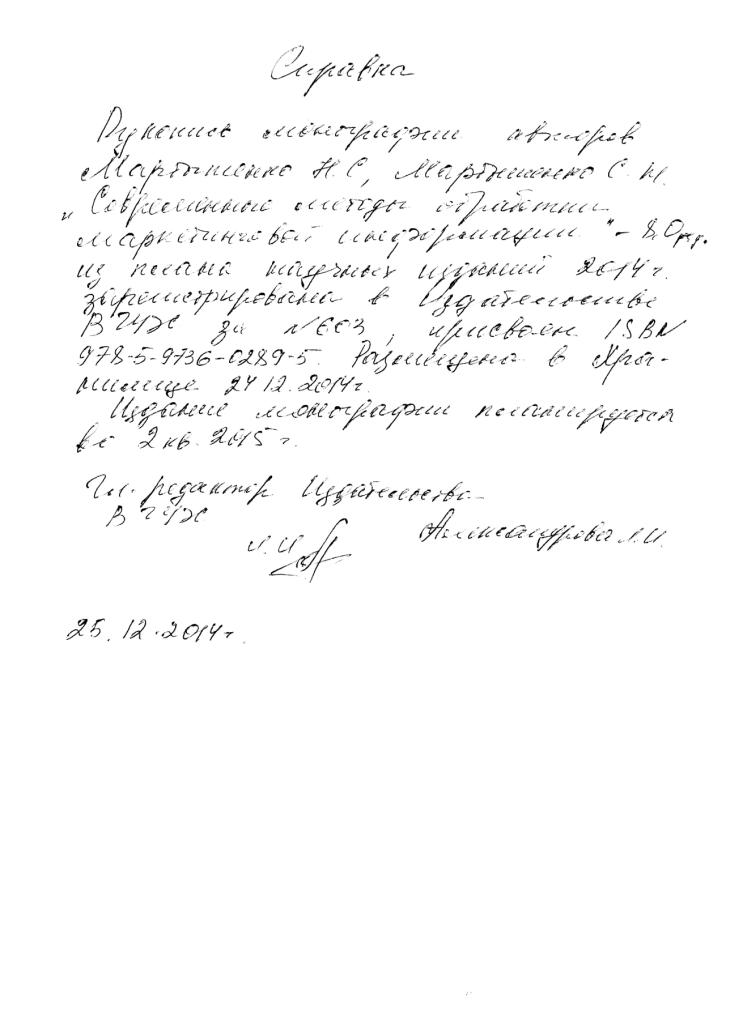 Справка
Рукопись монографии авторов
Мартышенко Н.С, Мартышенко С.Н.
„Современные методы обработки
маркетинговой информации" – 8.0
из плана научных изданий 2014г.
зарегистрирована в Издательстве
ВГУЭС за №603, присвоен ISBN
978-5-9736-0289-5. Размещена в Хра-
нилище 24 12.2014г.
Издание монографии планируется
во 2 кв. 2015 г.
Гл. редактор Издательства
ВГУЭС
Александрова Л.И.
25.12.2014г.